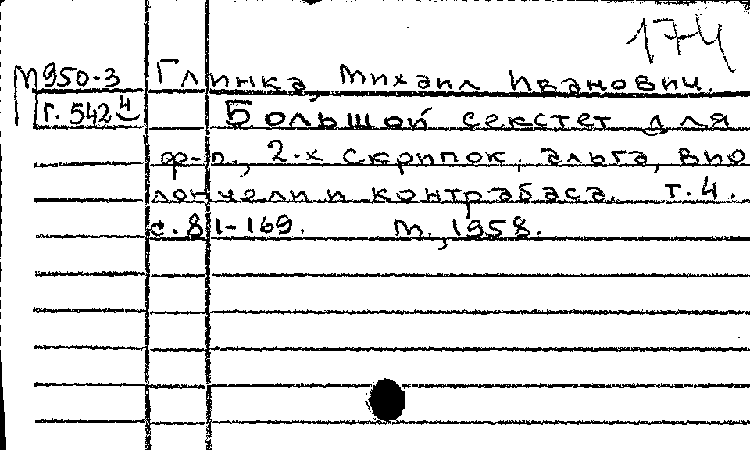 174
М950-3 Глинка, Михаил Иванович.
Г. 542 4 Большой секстет для
ф-п., 2-х скрипок, альта, вио
лончели и контрабаса. т.4.
с.81-169. М., 1958.